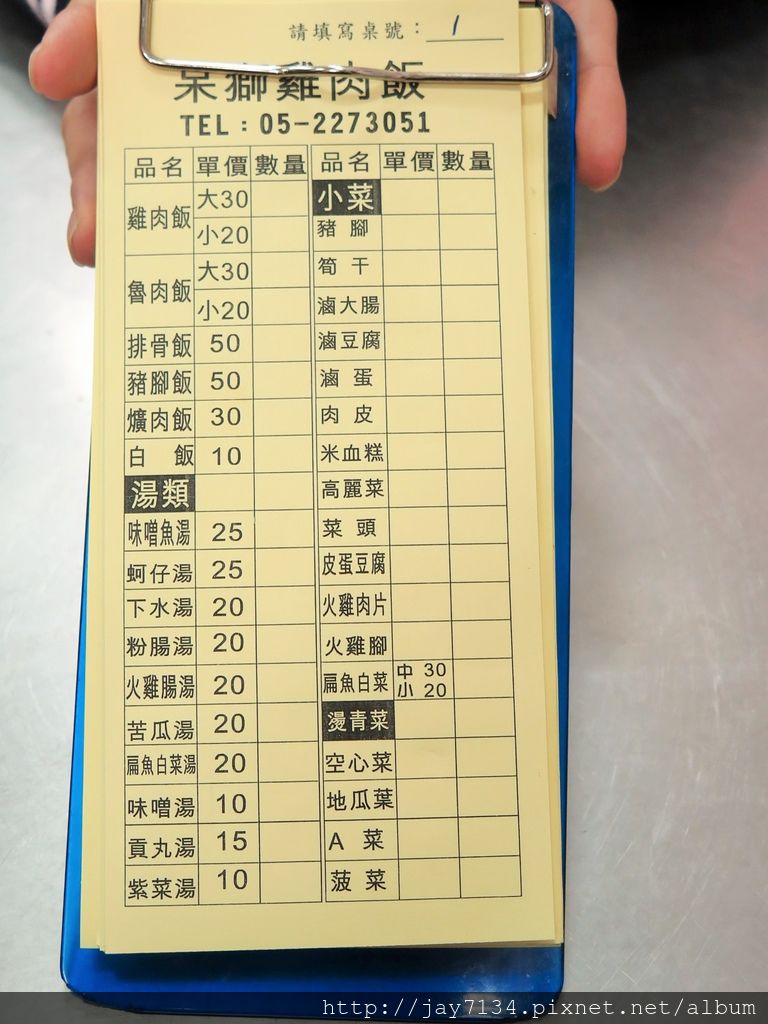 請填寫桌號： 1
呆獅雞肉飯
TEL：05-2273051
品名 單價 數量 品名 單價 數量
雞肉飯 大30 小菜
小20 豬腳
魯肉飯 大30 筍干
小20 滷大腸
排骨飯 50 滷豆腐
豬腳飯 50 滷蛋
爌肉飯 30 肉皮
白飯 10 米血糕
湯類 高麗菜
味噌魚湯 25 菜頭
蚵仔湯 25 皮蛋豆腐
下水湯 20 火雞肉片
粉腸湯 20 火雞腳
火雞腸湯 20 扁魚白菜 中 30 小 20
苦瓜湯 20 燙青菜
扁魚白菜湯 20 空心菜
味噌湯 10 地瓜葉
貢丸湯 15 A菜
紫菜湯 10 菠菜
http://jay7134.pixnet.net/album